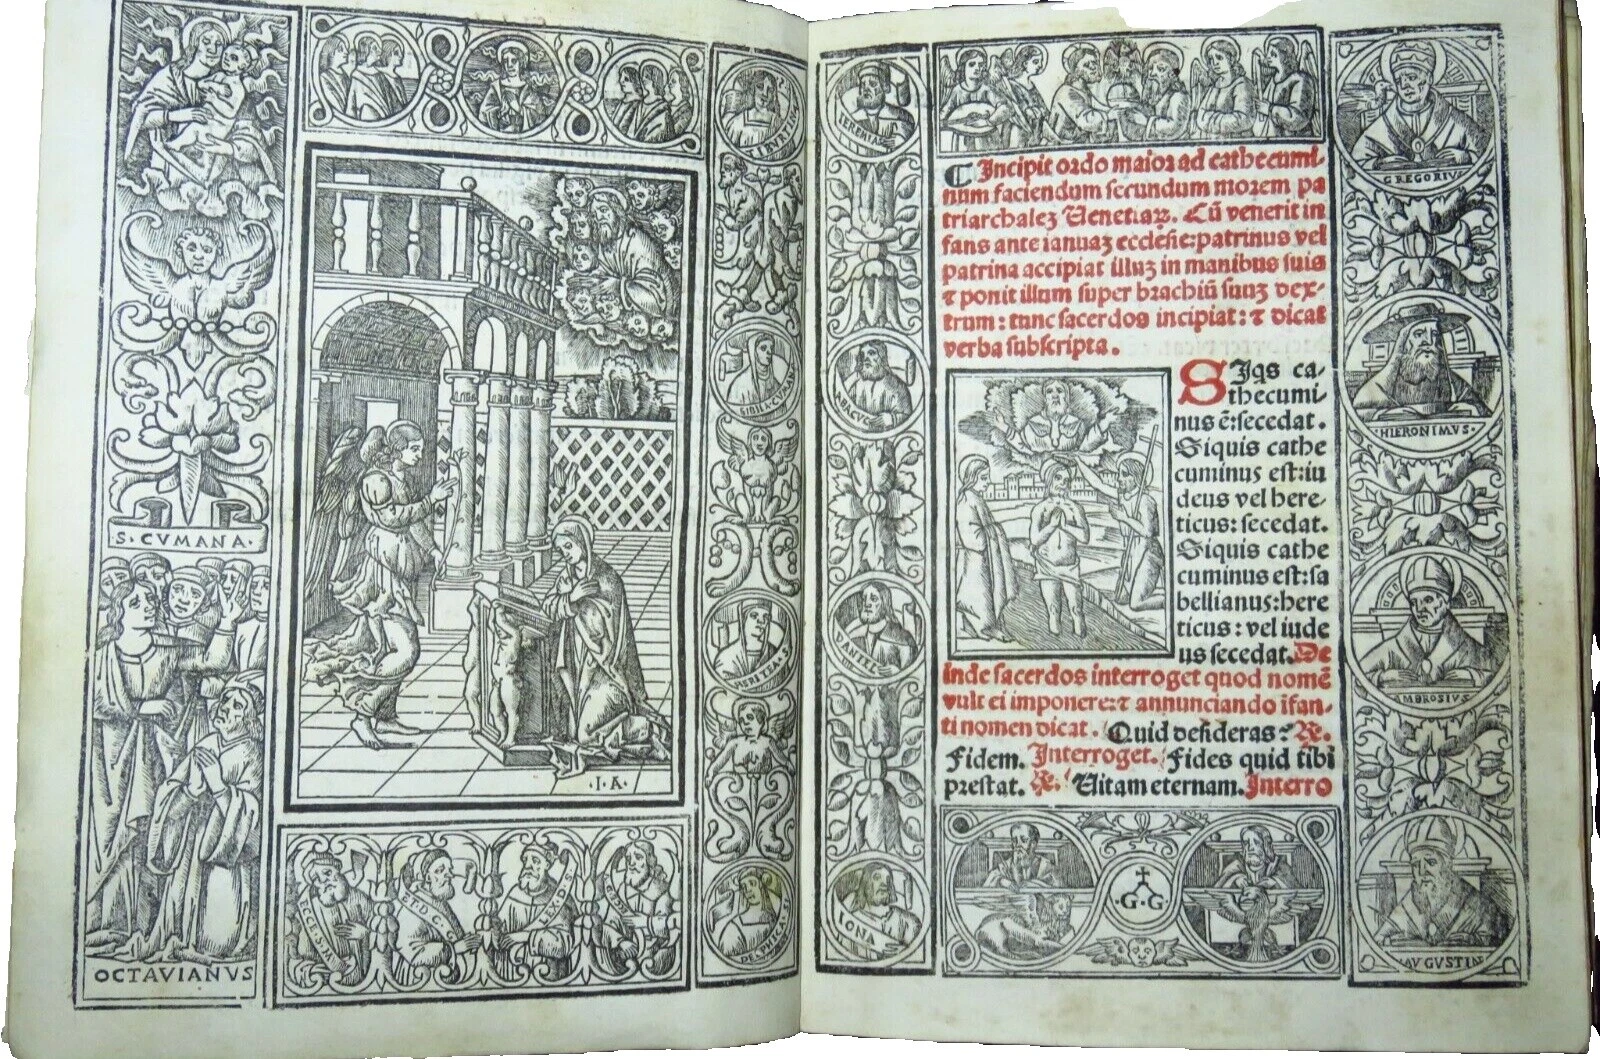 S·CVMANA·
OCTAVIANVS
·I·A·
SIBILA·CVMAN
DELPHICA·S
IEREMIAS
ABACVC
DANIEL
IONA
Incipit ordo maior ad cathecumi-
num faciendum secundum morem pa
triarchaleʒ Uenetiaꝝ. Cũ venerit in
fans ante ianuaʒ ecclesie: patrinus vel
patrina accipiat illuʒ in manibus suis
⁊ ponit illum super brachiũ suuʒ dex-
trum: tunc sacerdos incipiat: ⁊ dicat
verba subscripta.
SIqs ca-
thecumi-
nus ẽ: secedat.
Siquis cathe
cuminus est: iu
deus vel here-
ticus: secedat.
Siquis cathe
cuminus est: sa
bellianus: here
ticus: vel iude
us secedat. De
inde sacerdos interroget quod nomẽ
vult ei imponere: ⁊ annunciando ĩfan-
ti nomen dicat. Quid desideras? ℟.
Fidem. Interroget. Fides quid tibi
prestat. ℟. Uitam eternam. Interro
·G·G·
GREGORIVS
·HIERONIMVS·
AMBROSIVS
AVGVSTIN